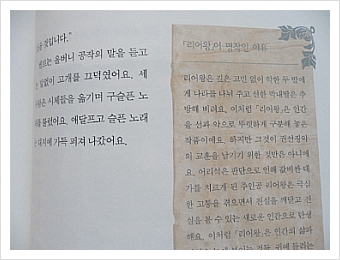 것입니다."
프는 올버니 공작의 말을 듣고
없이 고개를 끄덕였어요. 세
은 시체들을 옮기며 구슬픈 노
불렀어요. 애달프고 슬픈 노래
대지에 가득 퍼져 나갔어요.
「리어왕」이 명작인 이유
리어왕은 깊은 고민 없이 악한 두 딸에
게 나라를 나눠 주고 선한 막내딸은 추
방해 버려요. 이처럼 「리어왕」은 인간
을 선과 악으로 뚜렷하게 구분해 놓은
작품이에요. 하지만 그것이 권선징악
의 교훈을 남기기 위한 것만은 아니에
요. 어리석은 판단으로 인해 값비싼 대
가를 치르게 된 주인공 리어왕은 극심
한 고통을 겪으면서 진실을 깨닫고 진
실을 볼 수 있는 새로운 인간으로 탄생
해요. 이처럼 「리어왕」은 인간의 삶과